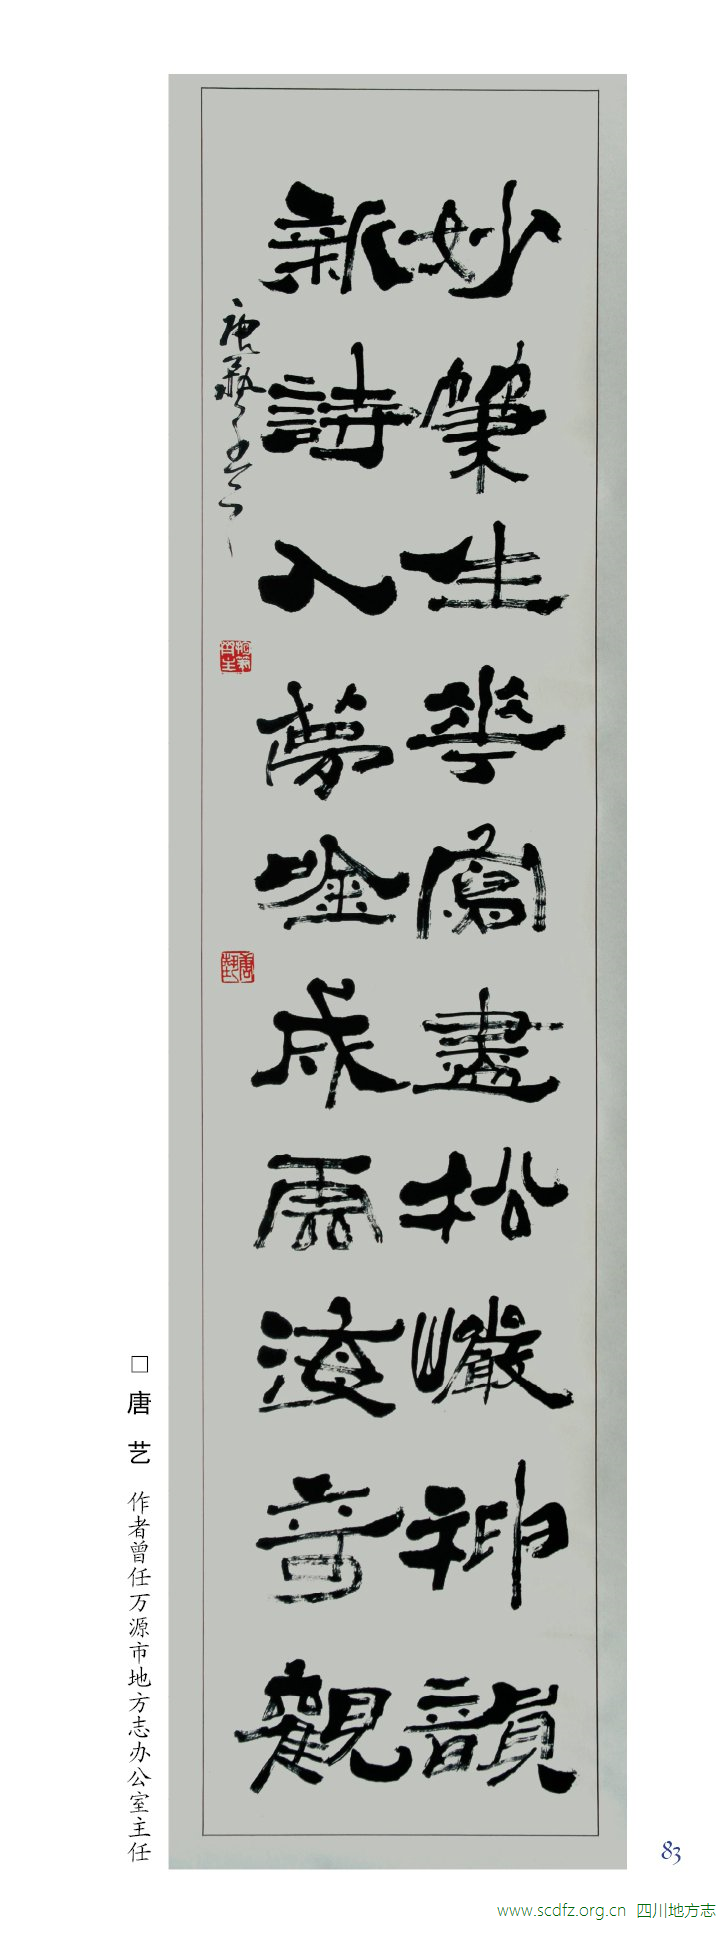 妙筆生花寫盡松巖神韻
新詩入夢唫成雲海竒觀
唐藝
唐藝
□ 唐 艺 作者曾任万源市地方志办公室主任
83
www.scdfz.org.cn 四川地方志